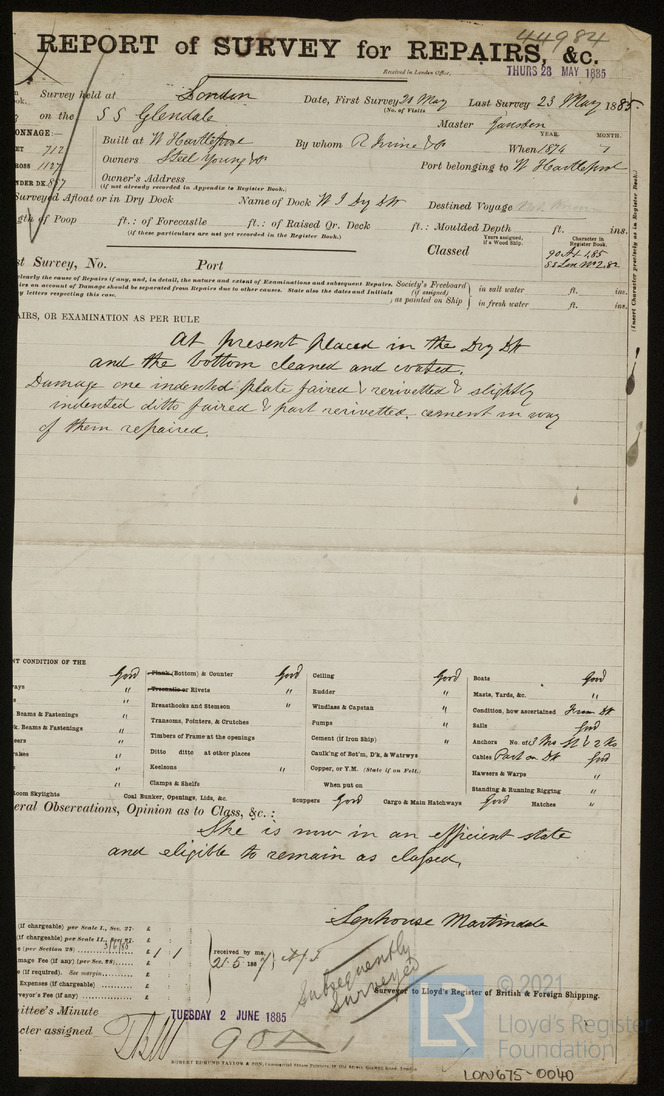 44984
REPORT of SURVEY for REPAIRS, &c.
Received in London Office, THURS 28 MAY 1885
Survey held at London Date, First Survey 21 May Last Survey 23 May 1885
(No. of Visits
on the SS Glendale Master
TONNAGE:— YEAR. MONTH.
712 Built at W Hartlepool By whom R Irvine & Co When 1874 7
GROSS 1127 Owners Steel Young & Co Port belonging to W Hartlepool
UNDER DK. 887 Owner's Address
(if not already recorded in Appendix to Register Book.)
Surveyed Afloat or in Dry Dock Name of Dock W I Dry Dk Destined Voyage
gth of Poop ft.: of Forecastle ft.: of Raised Qr. Deck ft.: Moulded Depth ft. ins.
(if these particulars are not yet recorded in the Register Book.)
Classed Years assigned, if a Wood Ship. Character in Register Book.
90 A1 1,85
SS Lon No 2.82
(Insert Character precisely as in Register Book.)
st Survey, No. Port
clearly the cause of Repairs if any, and, in detail, the nature and extent of Examinations and subsequent Repairs.
on account of Damage should be separated from Repairs due to other causes. State also the dates and Initials
y letters respecting this case.
Society's Freeboard (if assigned) as painted on Ship
in salt water ft. ins.
in fresh water ft. ins.
AIRS, OR EXAMINATION AS PER RULE
At present placed in the Dry Dk
and the bottom cleaned and coated.
Damage one indented plate faired & rerivetted & slightly
indented ditto faired & part rerivetted. cement in way
of them repaired.
NT CONDITION OF THE
ways Good Plank (Bottom) & Counter Good Ceiling Boats Good
" Treenails or Rivets " Rudder Masts, Yards, &c. "
Beams & Fastenings " Breasthooks and Stemson " Windlass & Capstan Condition, how ascertained From Dk
k. Beams & Fastenings " Transoms, Pointers, & Crutches Pumps Sails Good
eers " Timbers of Frame at the openings Cement (if Iron Ship) " Anchors No. of 3
rakes " Ditto ditto at other places Caulk'ng of Bot'm, D'k, & Watrwys Cables Part on Dk Good
" Keelsons " Copper, or Y.M. (State if on Felt.) Hawsers & Warps "
" Clamps & Shelfs When put on Standing & Running Rigging "
oom Skylights " Coal Bunker, Openings, Lids, &c. Scuppers Good Cargo & Main Hatchways Good Hatches "
eral Observations, Opinion as to Class, &c.:
She is now in an efficient state
and eligible to remain as classed.
Martindale
(if chargeable) per Scale I., Sec. 27: £ : :
(if chargeable) per Scale II., Sec. 27. £ : :
(per Section 28) £ 1 : 1 : received by me,
mage Fee (if any) (per Sec. 28) £ : : 21.5.188
(if required). See margin £ : :
Expenses (if chargeable) £ : :
veyor's Fee (if any) £ : :
Subsequently
Surveyed
Surveyor to Lloyd's Register of British & Foreign Shipping.
ittee's Minute TUESDAY 2 JUNE 1885
cter assigned 90A1
ROBERT EDMUND TAYLOR & SON, Commercial Steam Printers, 19 Old Street, Goswell Road, London
LR
© 2021
Lloyd's Register
Foundation
LON675-0040